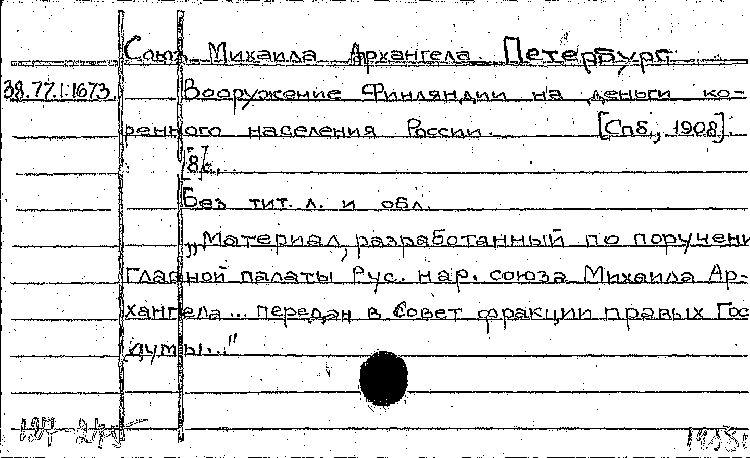 Союз Михаила Архангела. Петербург
38.77.1.1673. Вооружение Финляндии на деньги ко-
ренного населения России. [Спб., 1908].
[8]с.
Без тит. л. и обл.
„Материал, разработанный по поручени
Главной палаты Рус. нар. союза Михаила Ар-
хангела... передан в Совет фракции правых Гос
думы..."